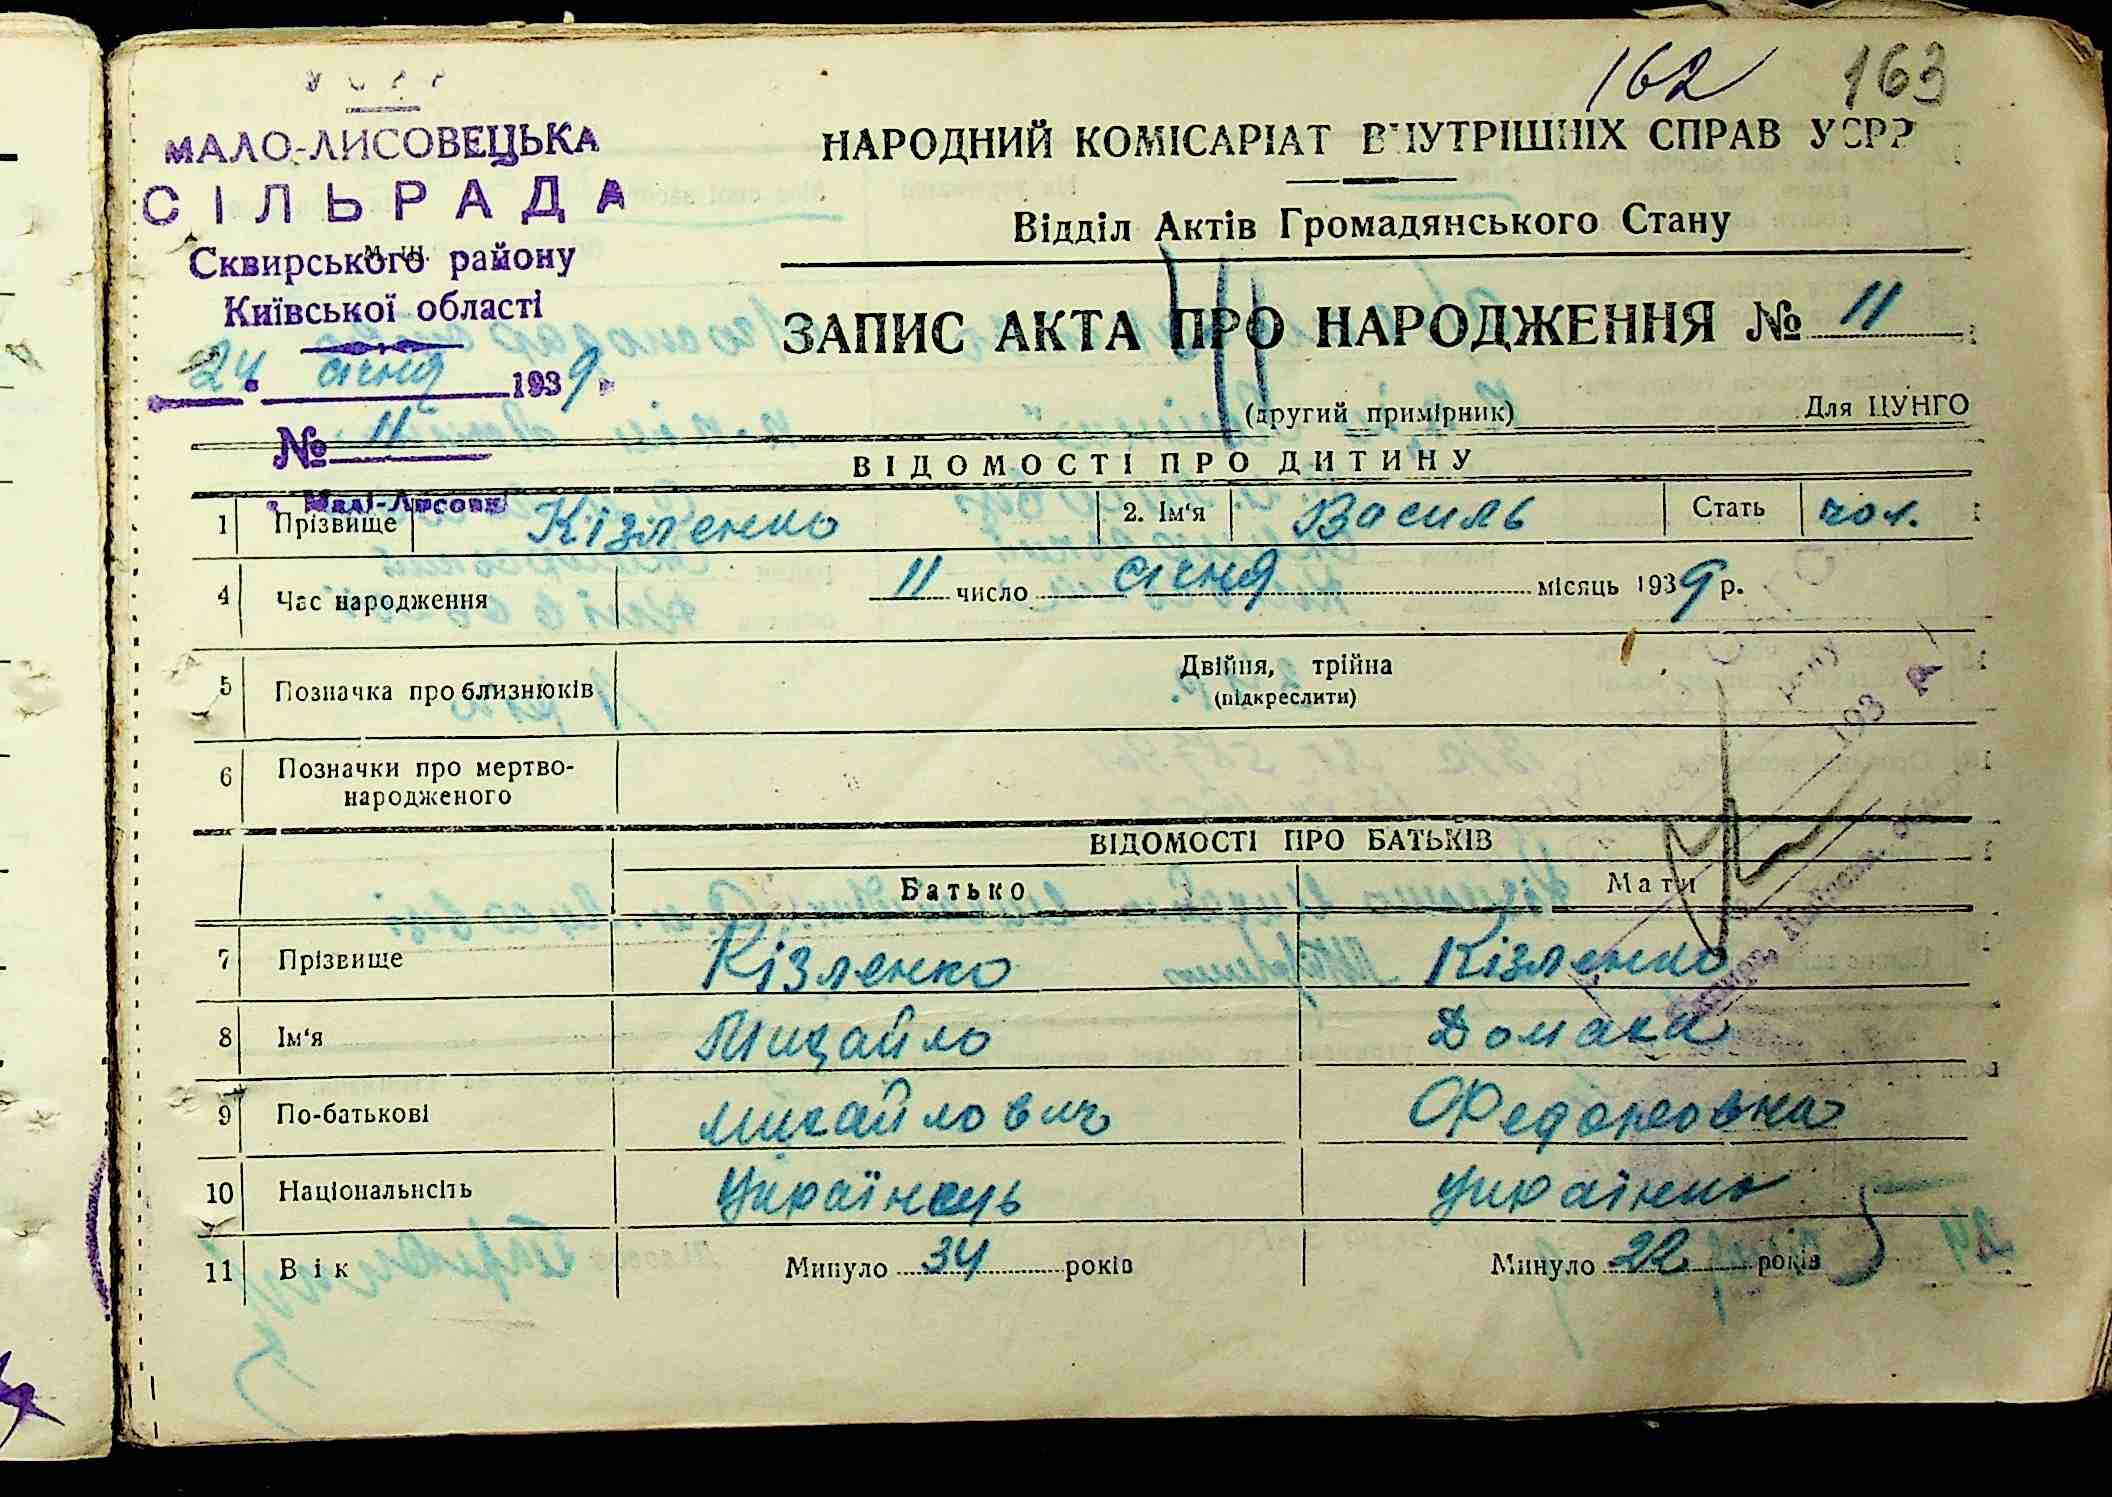 162 163
УСРР
МАЛО-ЛИСОВЕЦЬКА
СІЛЬРАДА
Сквирського району
Київської області
24 січня 1939 р.
№ 11
НАРОДНИЙ КОМІСАРІАТ ВНУТРІШНІХ СПРАВ УСРР
Відділ Актів Громадянського Стану
ЗАПИС АКТА ПРО НАРОДЖЕННЯ № 11
(другий примірник) Для ЦУНГО
ВІДОМОСТІ ПРО ДИТИНУ
1 Прізвище Кізленко 2. Ім'я Василь Стать чол.
4 Час народження 11 число січня місяць 1939 р.
5 Позначка про близнюків Двійня, трійна
(підкреслити)
6 Позначки про мертво-
народженого
ВІДОМОСТІ ПРО БАТЬКІВ
Батько Мати
7 Прізвище Кізленко Кізленко
8 Ім'я Михайло Домаха
9 По-батькові Михайлович Федоровна
10 Національність Українець українка
11 Вік Минуло 34 років Минуло 22 років